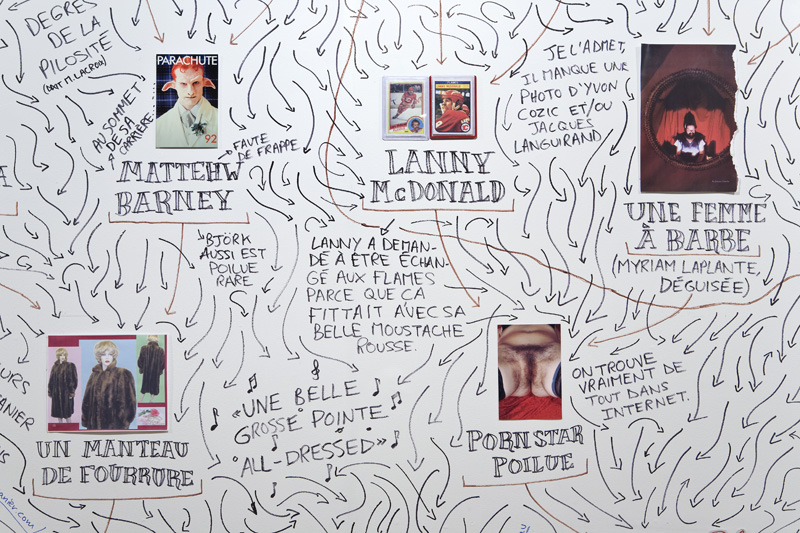 DEGRÉS
DE LA
PILOSITÉ
(DIXIT M. LACROIX)
AU SOMMET
DE SA
CARRIÈRE
PARACHUTE
92
FAUTE
DE FRAPPE
MATTEHW
BARNEY
BJÖRK
AUSSI EST
POILUE
RARE
LANNY
McDONALD
LANNY A DEMAN-
DÉ À ÊTRE ÉCHAN-
GÉ AUX FLAMES
PARCE QUE ÇA
FITTAIT AVEC SA
BELLE MOUSTACHE
ROUSSE.
JE L'ADMET,
IL MANQUE UNE
PHOTO D'YVON
COZIC ET/OU
JACQUES
LANGUIRAND
UNE FEMME
À BARBE
(MYRIAM LAPLANTE,
DÉGUISÉE)
UN MANTEAU
DE FOURRURE
«UNE BELLE
GROSSE POINTE
"ALL-DRESSED»
PORN STAR
POILUE
ON TROUVE
VRAIMENT DE
TOUT DANS
INTERNET.